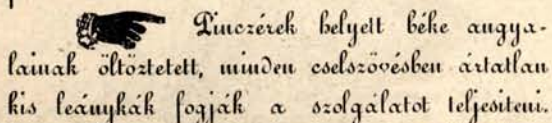 Pinczérek helyett béke angya-
lainak öltöztetett, minden cselszövésben ártatlan
kis leánykák fogják a szolgálatot teljesiteni.